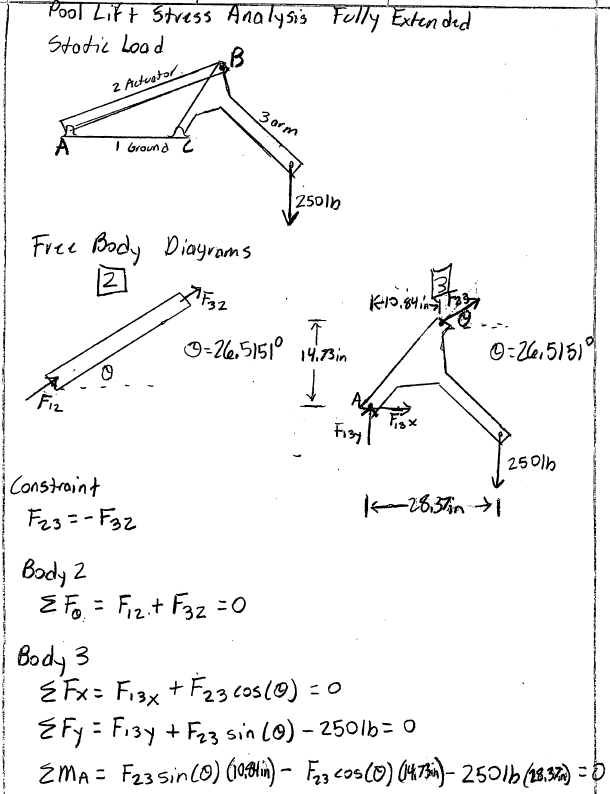 Pool Lift Stress Analysis Fully Extended
Static Load
B
2 Actuator
3 arm
A
1 Ground
C
250lb
Free Body Diagrams
2
3
F32
10.84in
F23
θ
θ=26.5151°
14.73in
θ=26.5151°
θ
F12
A
F13x
F13y
250lb
28.37in
Constraint
F23 = -F32
Body 2
ΣFθ = F12 + F32 = 0
Body 3
ΣFx = F13x + F23 cos(θ) = 0
ΣFy = F13y + F23 sin(θ) - 250lb = 0
ΣMA = F23 sin(θ)(10.84in) - F23 cos(θ)(14.73in) - 250lb(28.37in) = 0